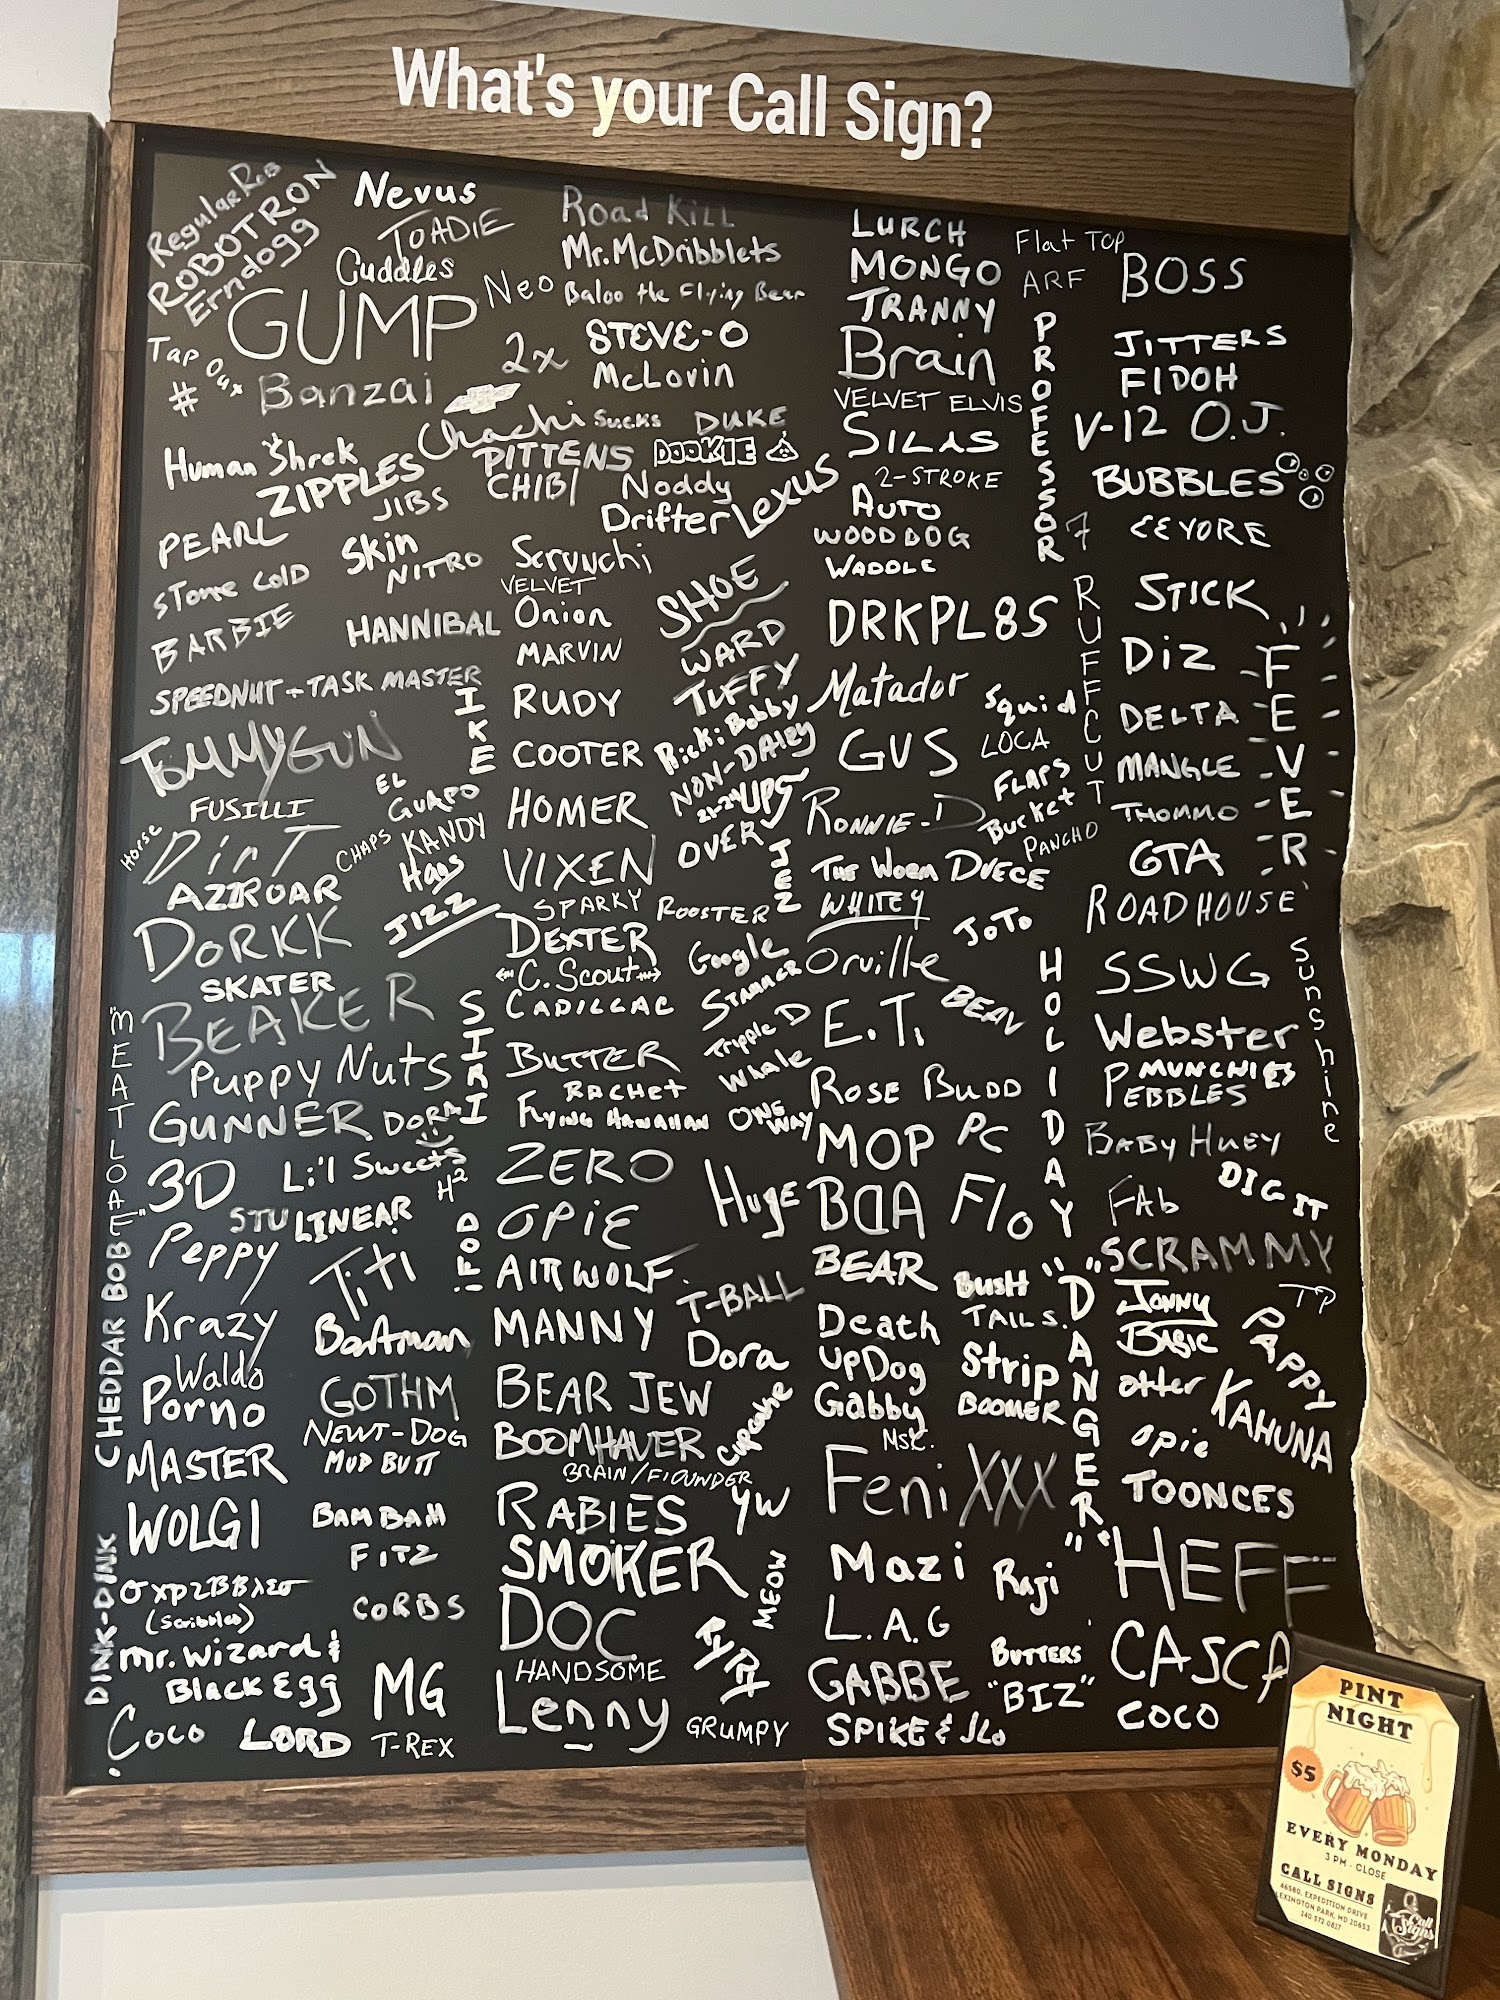 What's your Call Sign?
Regular Rob
ROBOTRON
Erndogg
Nevus
TOADIE
Cuddles
GUMP
Neo
Tap Out
#
Banzai
2x
Road Kill
Mr. McDribblets
Baloo the Flying Bear
STEVE-O
McLovin
Chachi Sucks
DUKE
Human Shrek
ZIPPLES
JIBS
PITTENS
DOOKIE
CHIBI
Noddy
Drifter
Lexus
PEARL
Skin
NITRO
Scrunchi
VELVET
Onion
STONE COLD
BARBIE
HANNIBAL
MARVIN
SHOE
WARD
TUFFY
SPEEDNUT + TASK MASTER
IKE
RUDY
Ricki Bobby
TOMMYGUN
COOTER
NON-DAIRY
21-24
UPS
OVER
FUSILLI
EL GUAPO
HOMER
Horse
DirT
CHAPS
KANDY
Hags
VIXEN
JEN
AZZROAR
JIZZ
SPARKY
ROOSTER
DORKK
DEXTER
Google
SKATER
C. Scout
STAMMER
BEAKER
SIRI
CADILLAC
Tripple D
Puppy Nuts
BUTTER
Whale
RACHET
GUNNER
DORA
Flying HAWAIIAN
ONE WAY
3D
Li'l Sweets
H²
ZERO
Huge
STU
LINEAR
OPIE
Peppy
TiTi
!FOD
AIRWOLF
T-BALL
Krazy
Boatman
MANNY
Dora
Waldo
Porno
GOTHM
BEAR JEW
Cupcake
NEWT-DOG
MUD BUTT
BOOMHAUER
BRAIN/FLOUNDER
MASTER
YW
WOLGI
BAM BAM
RABIES
FITZ
SMOKER
MEOW
(Scribbles)
CORBS
DOC
Mr. Wizard &
Black Egg
MG
HANDSOME
Lenny
Coco
LORD
T-REX
GRUMPY
"MEATLOAF"
CHEDDAR BOB
DINK-DINK
LURCH
MONGO
TRANNY
Brain
VELVET ELVIS
SILAS
2-STROKE
AUTO
WOODDOG
WADDLE
DRKPL8S
Matador
Squid
GUS
LOCA
FLAPS
Bucket
RONNIE-D
PANCHO
THE WORM
DUECE
WHITEY
JOTO
Orville
BEAN
E.T.
ROSE BUDD
MOP
PC
BDA
Flo
BEAR
BUSH
TAILS.
Death
UpDog
Strip
Gabby
BOOMER
MSK.
Feni XXX
Mazi
Raji
L.A.G
BUTTERS
GABBE
"BIZ"
SPIKE & JLo
Flat TOP
ARF
BOSS
PROFESSOR
JITTERS
FIDOH
V-12
O.J.
BUBBLES
7
EEYORE
RUFFCUT
STICK
DiZ
FEVER
DELTA
MANGLE
THOMMO
GTA
ROADHOUSE
HOLIDAY
SSWG
Sunshine
Webster
MUNCHIES
PEBBLES
BABY HUEY
DIG IT
FAb
"SCRAMMY
TP
"DANGER"
JONNY
BASIC
PAPPY
otter
KAHUNA
opie
TOONCES
HEFF
CASCA
COCO
PINT
NIGHT
$5
EVERY MONDAY
3 PM - CLOSE
CALL SIGNS
46580, EXPEDITION DRIVE
LEXINGTON PARK, MD 20653
240.572.0817
Call
Signs